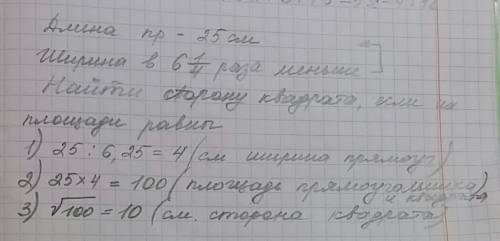 Длина пр - 25 см
Ширина в 6 1/4 раза меньше
Найти сторону квадрата, если их
площади равны
1) 25 : 6,25 = 4 (см ширина прямоуг)
2) 25 × 4 = 100 (площадь прямоугольника)
и квадрата
3) √100 = 10 (см. сторона квадрата)